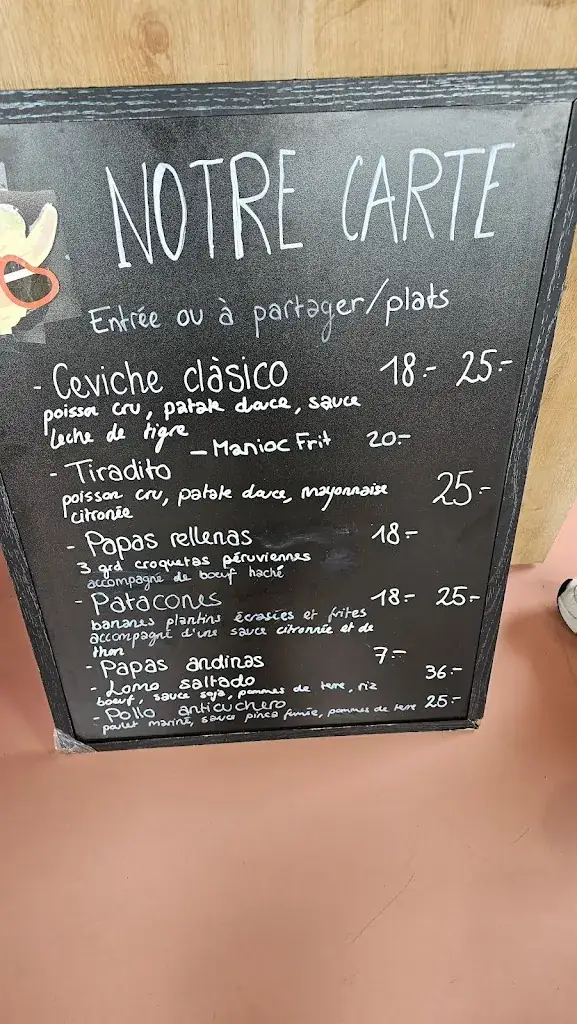 NOTRE CARTE
Entrée ou à partager/plats
- Ceviche clàsico 18.- 25.-
poisson cru, patate douce, sauce
leche de tigre
- Manioc Frit 20.-
- Tiradito
poisson cru, patate douce, mayonnaise 25.-
citronée
- Papas rellenas 18-
3 grd croquetas péruviennes
accompagné de bœuf haché
- Patacones 18- 25.-
bananes plantins écrasées et frites
accompagné d'une sauce citronnée et de
thon
- Papas andinas 7.-
- Lomo saltado 36.-
boeuf, sauce soja, pommes de terre, riz
- Pollo anticuchero 25.-
poulet mariné, sauce pinca fumée, pommes de terre